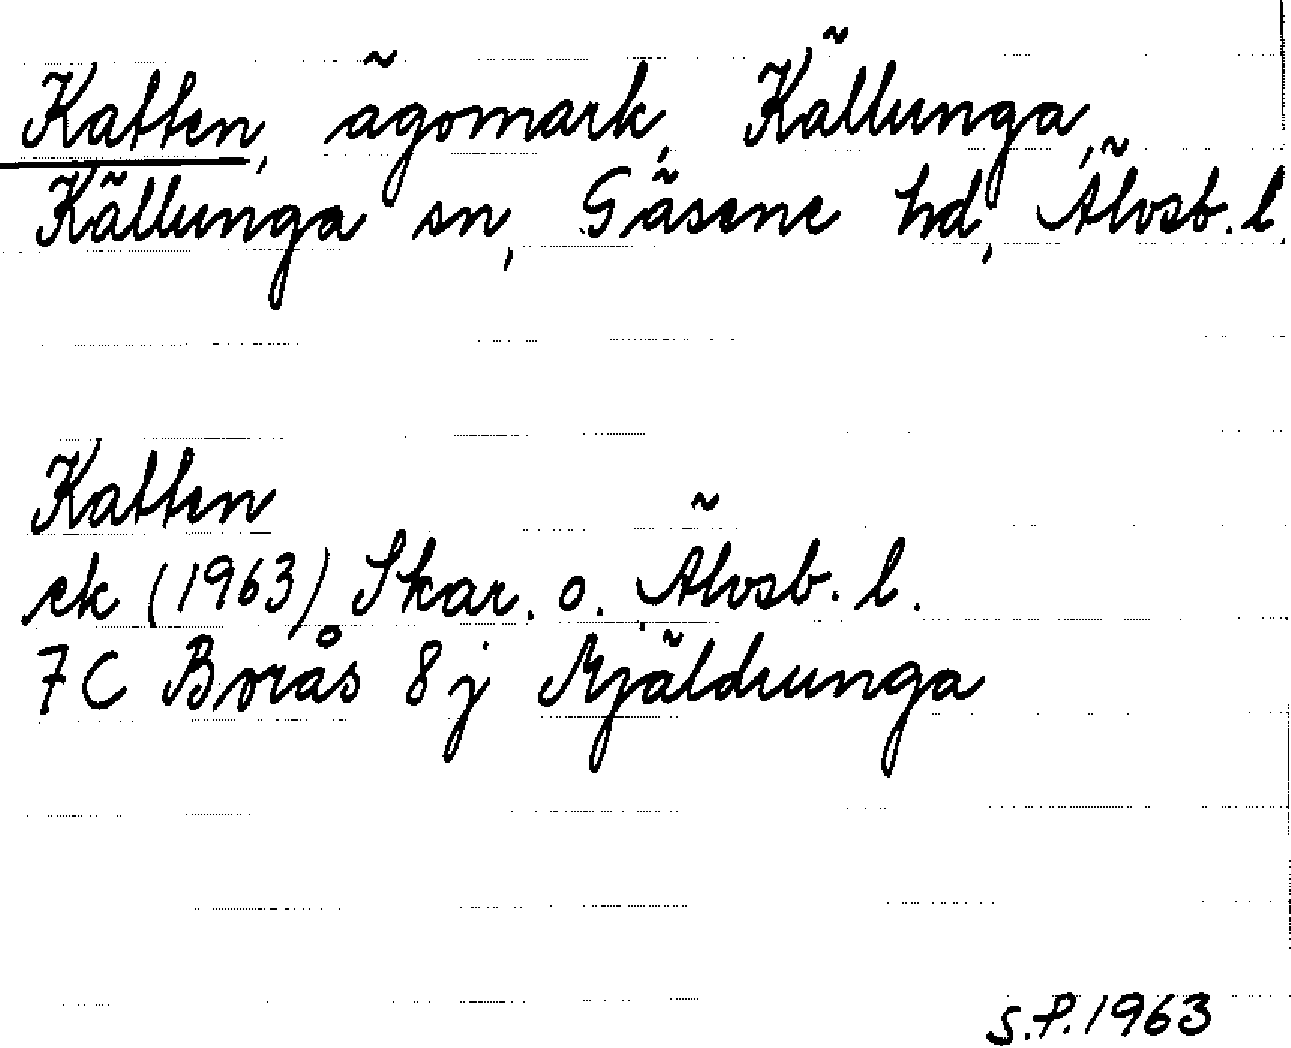 Katten, ägomark, Källunga,
Källunga sn, Gäsene hd, Älvsb. l.
Katten
ek (1963) Skar. o. Älvsb. l.
7C Borås 8j Mjäldrunga
S.P. 1963